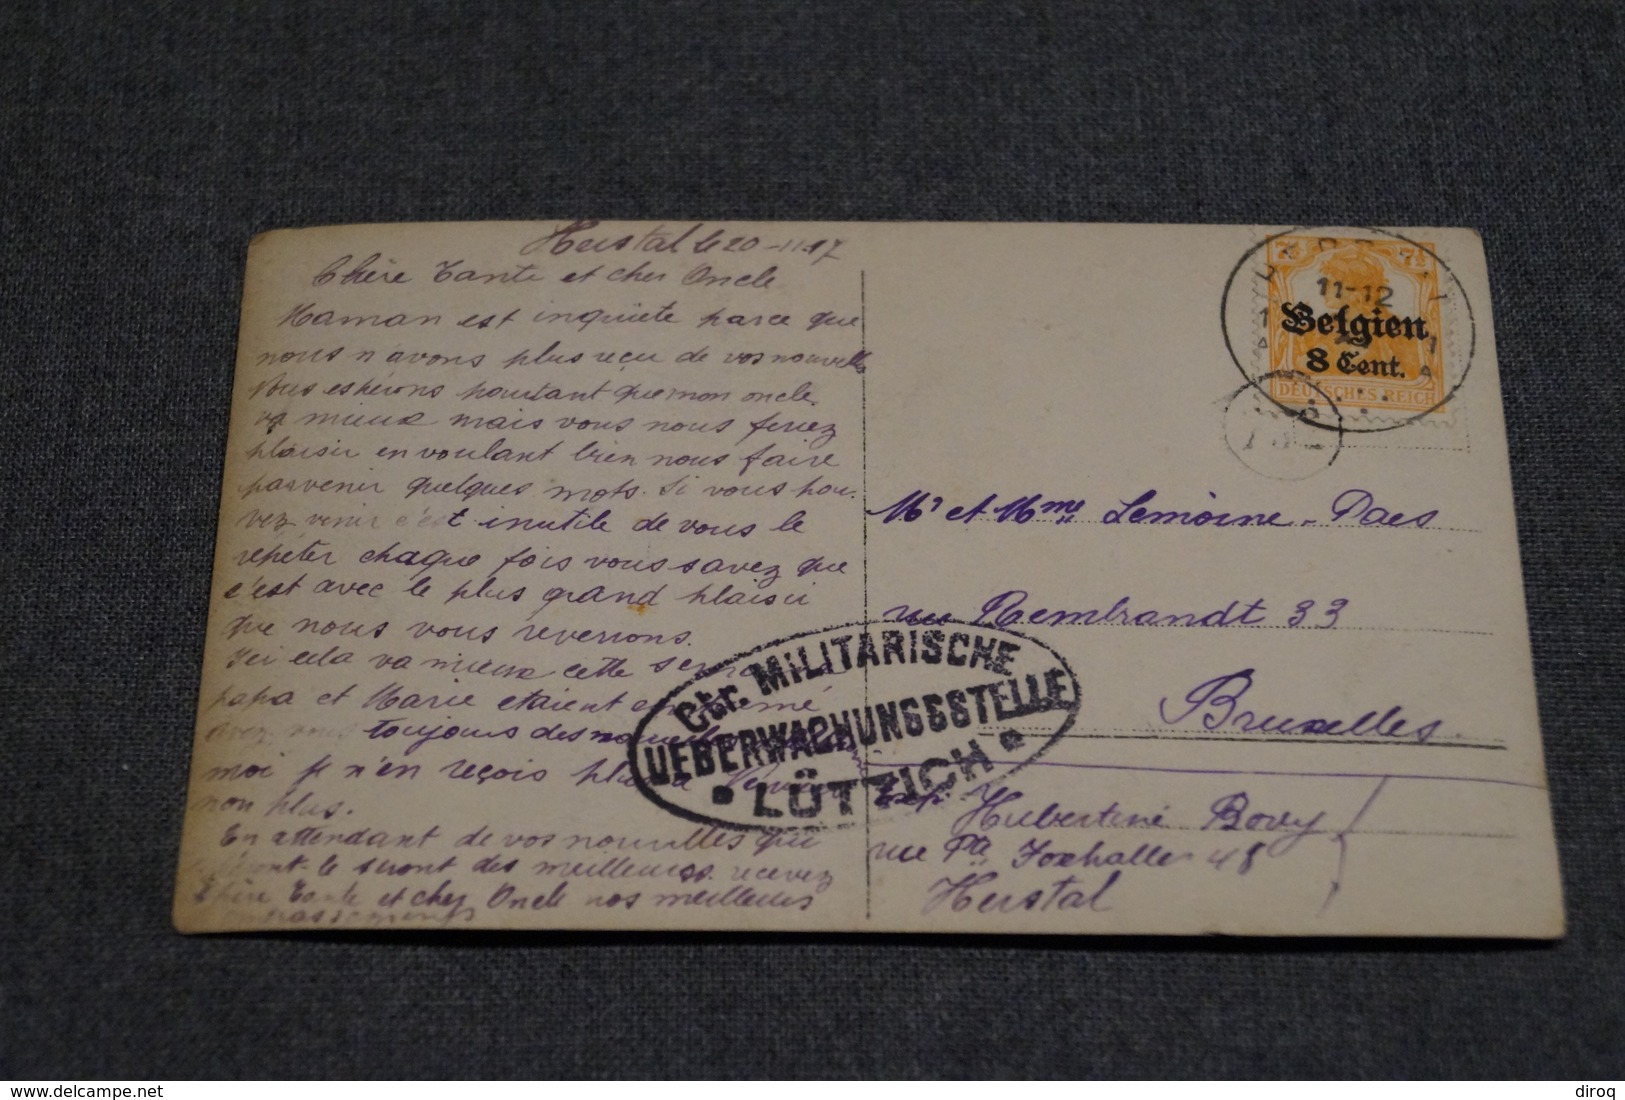 Herstal le 20-11-17
Chère Tante et cher Oncle
Maman est inquiète parce que
nous n'avons plus reçu de vos nouvelles
Nous espérons pourtant que mon oncle
va mieux mais vous nous feriez
plaisir en voulant bien nous faire
parvenir quelques mots. Si vous pou-
vez venir c'est inutile de vous le
repéter chaque fois vous savez que
c'est avec le plus grand plaisir
que nous vous reverrons.
Ici cela va mieux cette
papa et Marie etaient
avez vous toujours des nouvelles
moi je n'en reçois plus
non plus.
En attendant de vos nouvelles qui
le seront des meilleures recevez
Chère Tante et cher Oncle nos meilleurs
embrassements
7½ 7½
Belgien
8 Cent.
DEUTSCHES REICH
11-12
Mr et Mme Lemoine-Daes
rue Rembrandt 33
Bruxelles
Ctr. MILITÄRISCHE
UEBERWACHUNGSSTELLE
LÜTTICH
Exp. Hubertine Bovy
rue Foxhalle 48
Herstal
delcampe.net
diroq